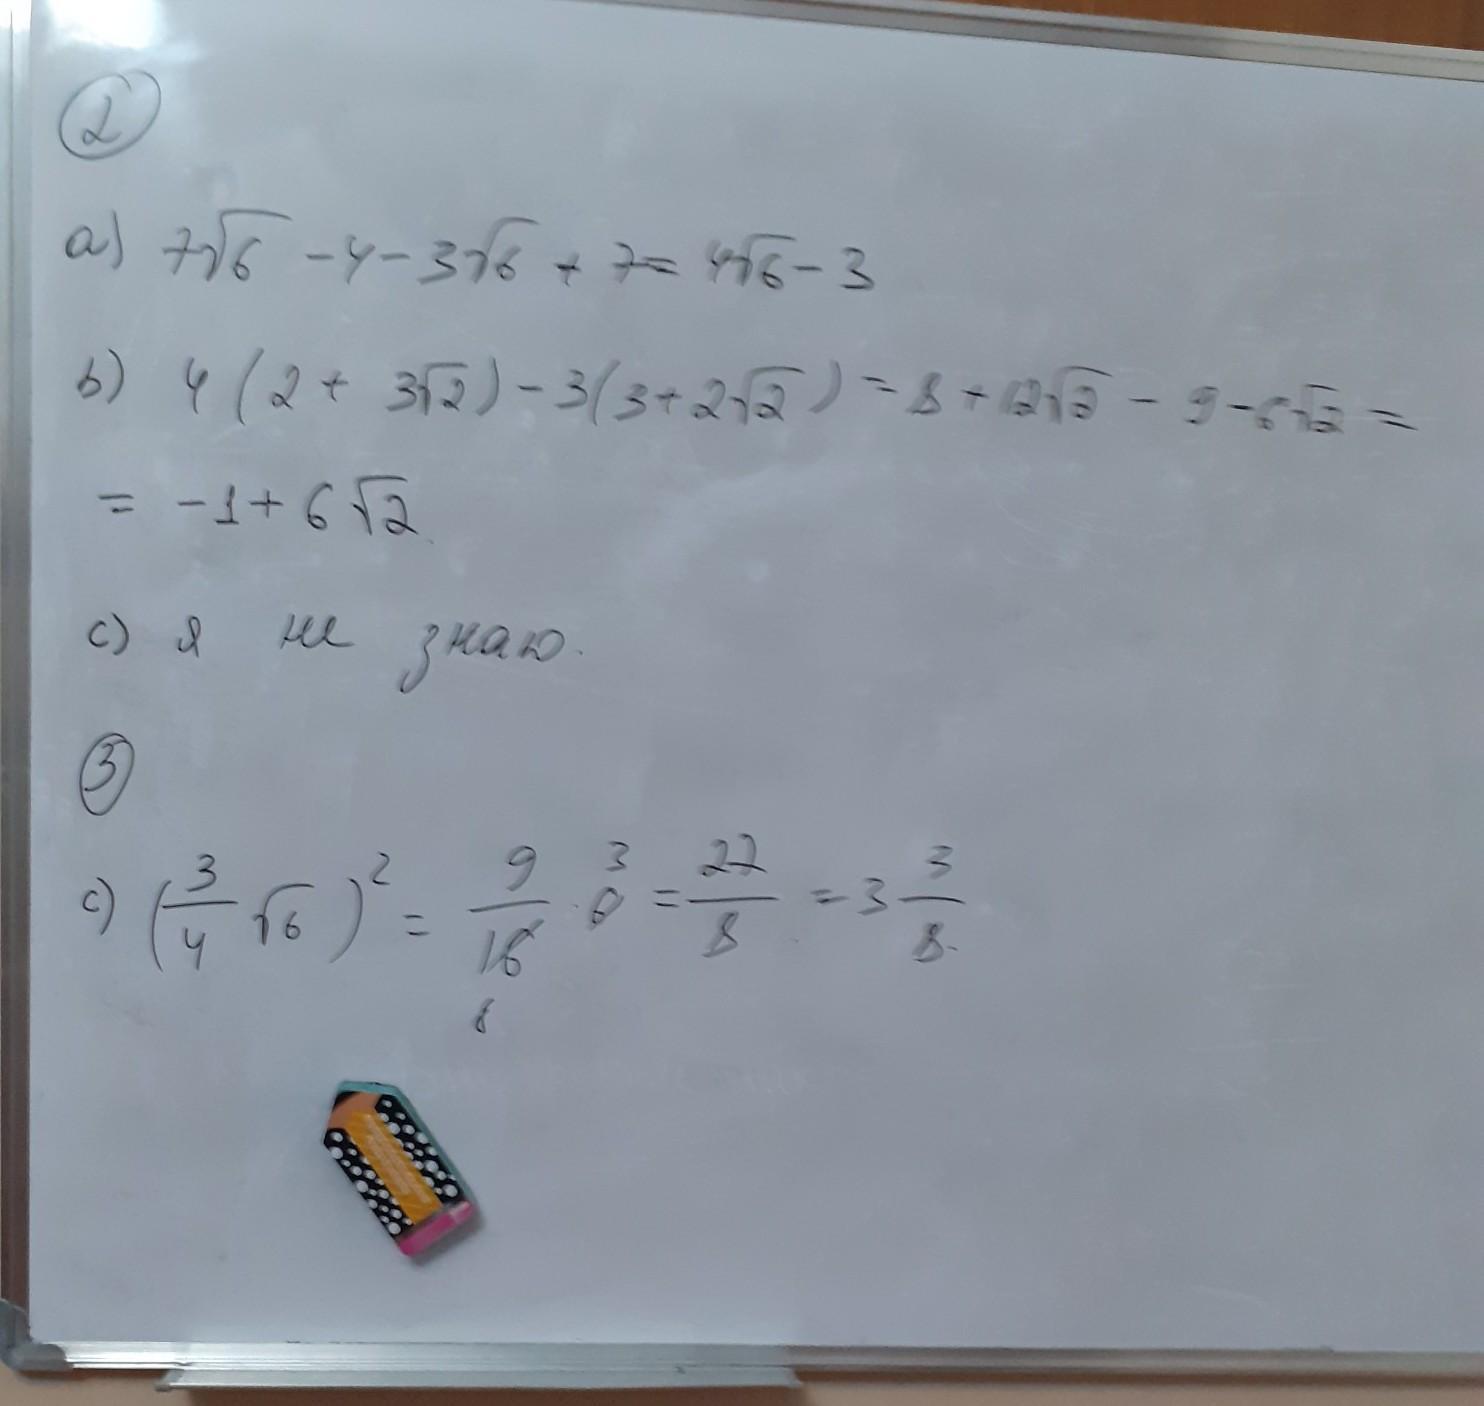 2
a) 7√6 - 4 - 3√6 + 7 = 4√6 - 3
b) 4(2 + 3√2) - 3(3 + 2√2) = 8 + 12√2 - 9 - 6√2 =
= -1 + 6√2
c) я не знаю.
3
c) (3/4 √6)² = 9/16 8 · 6 3 = 27/8 = 3 3/8